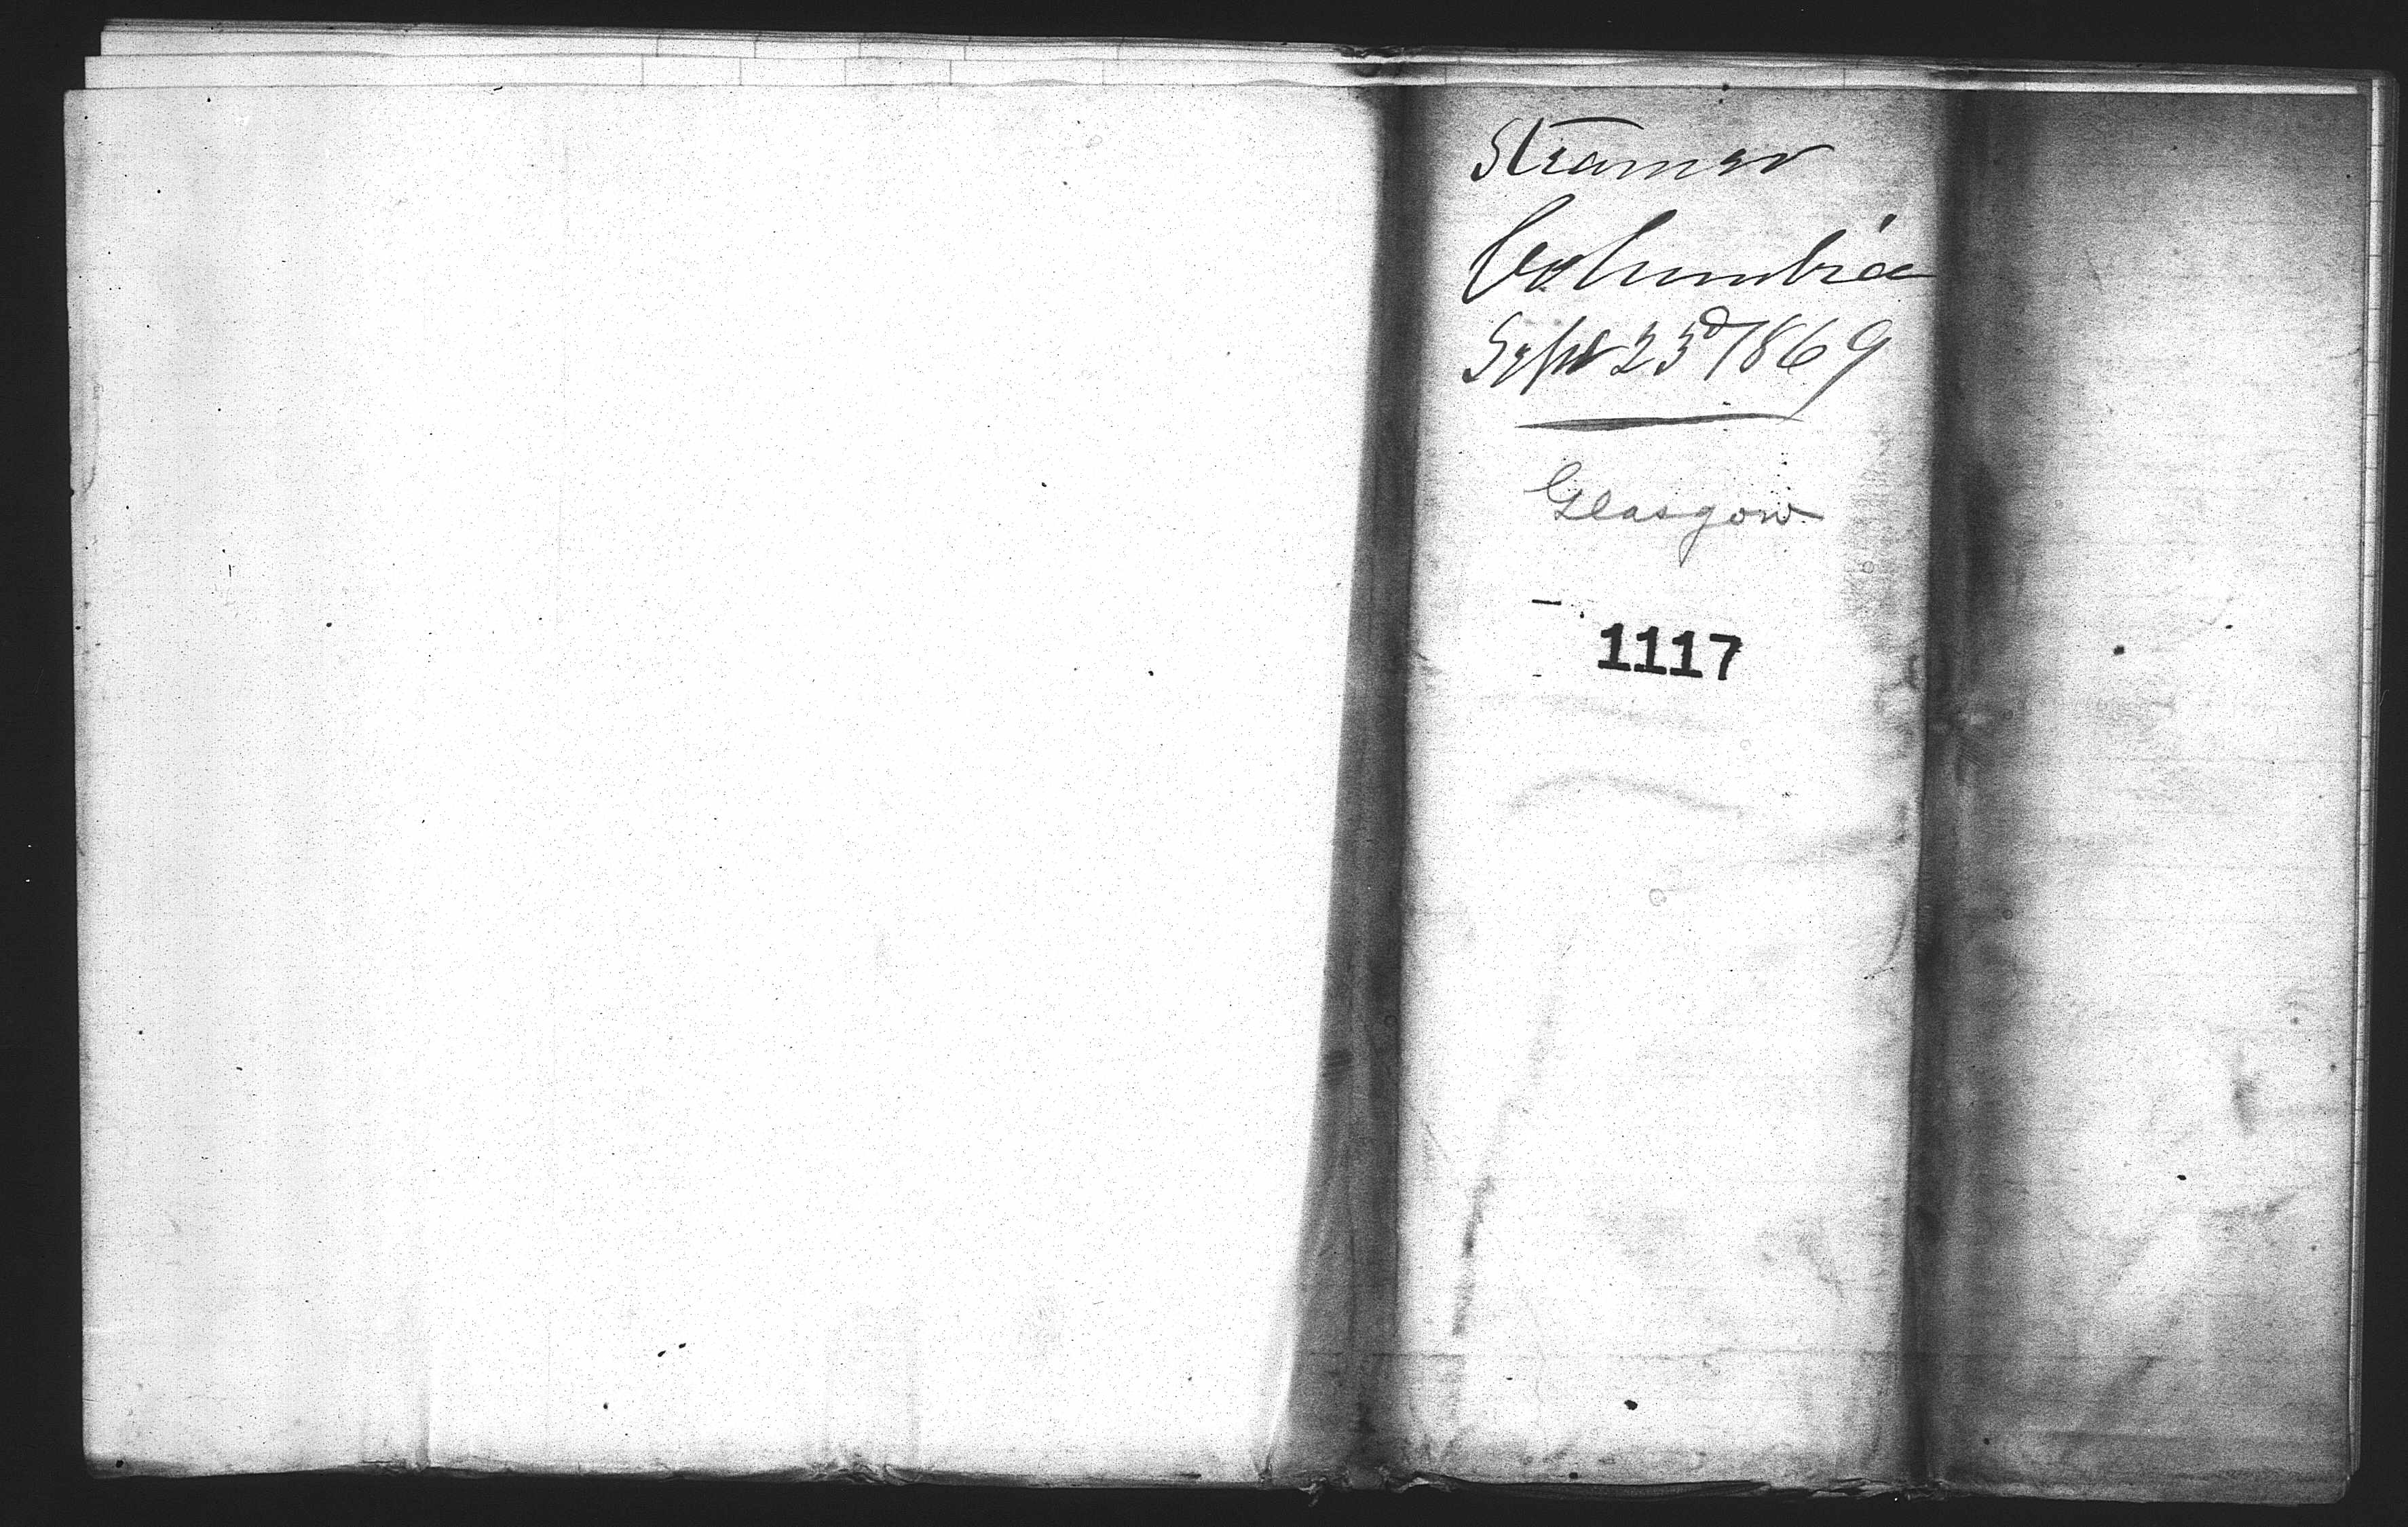 Steamer
Columbia
Sept 23d 1869
Glasgow
1117